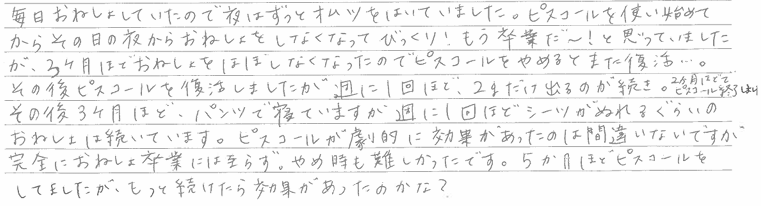 毎日おねしょしていたので夜はずっとオムツをはいていました。ピスコールを使い始めて
からその日の夜からおねしょをしなくなってびっくり！もう卒業だ〜！と思っていました
が、3ヶ月ほどおねしょをほぼしなくなったのでピスコールをやめるとまた復活…。
その後ピスコールを復活しましたが週に1回ほど、少しだけ出るのが続き。2ヶ月ほどで
ピスコール終了しました
その後3ヶ月ほど、パンツで寝ていますが週に1回ほどシーツがぬれるぐらいの
おねしょは続いています。ピスコールが劇的に効果があったのは間違いないですが
完全におねしょ卒業には至らず。やめ時も難しかったです。5か月ほどピスコールを
してましたが、もっと続けたら効果があったのかな？